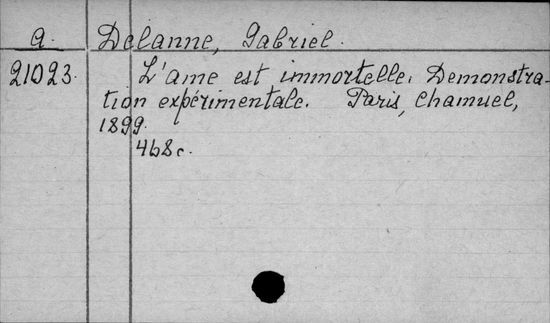 a. Delanne, Gabriel.
21023. L'ame est immortelle. Demonstra-
tion expérimentale. Paris, Chamuel,
1899.
468 c.